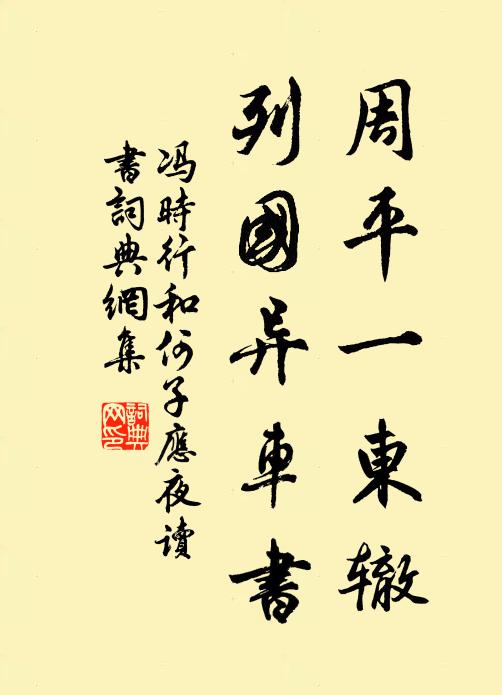 周平一東辙
列國异車書
冯時行和何子應夜讀
書詞典網集
詞典
网印